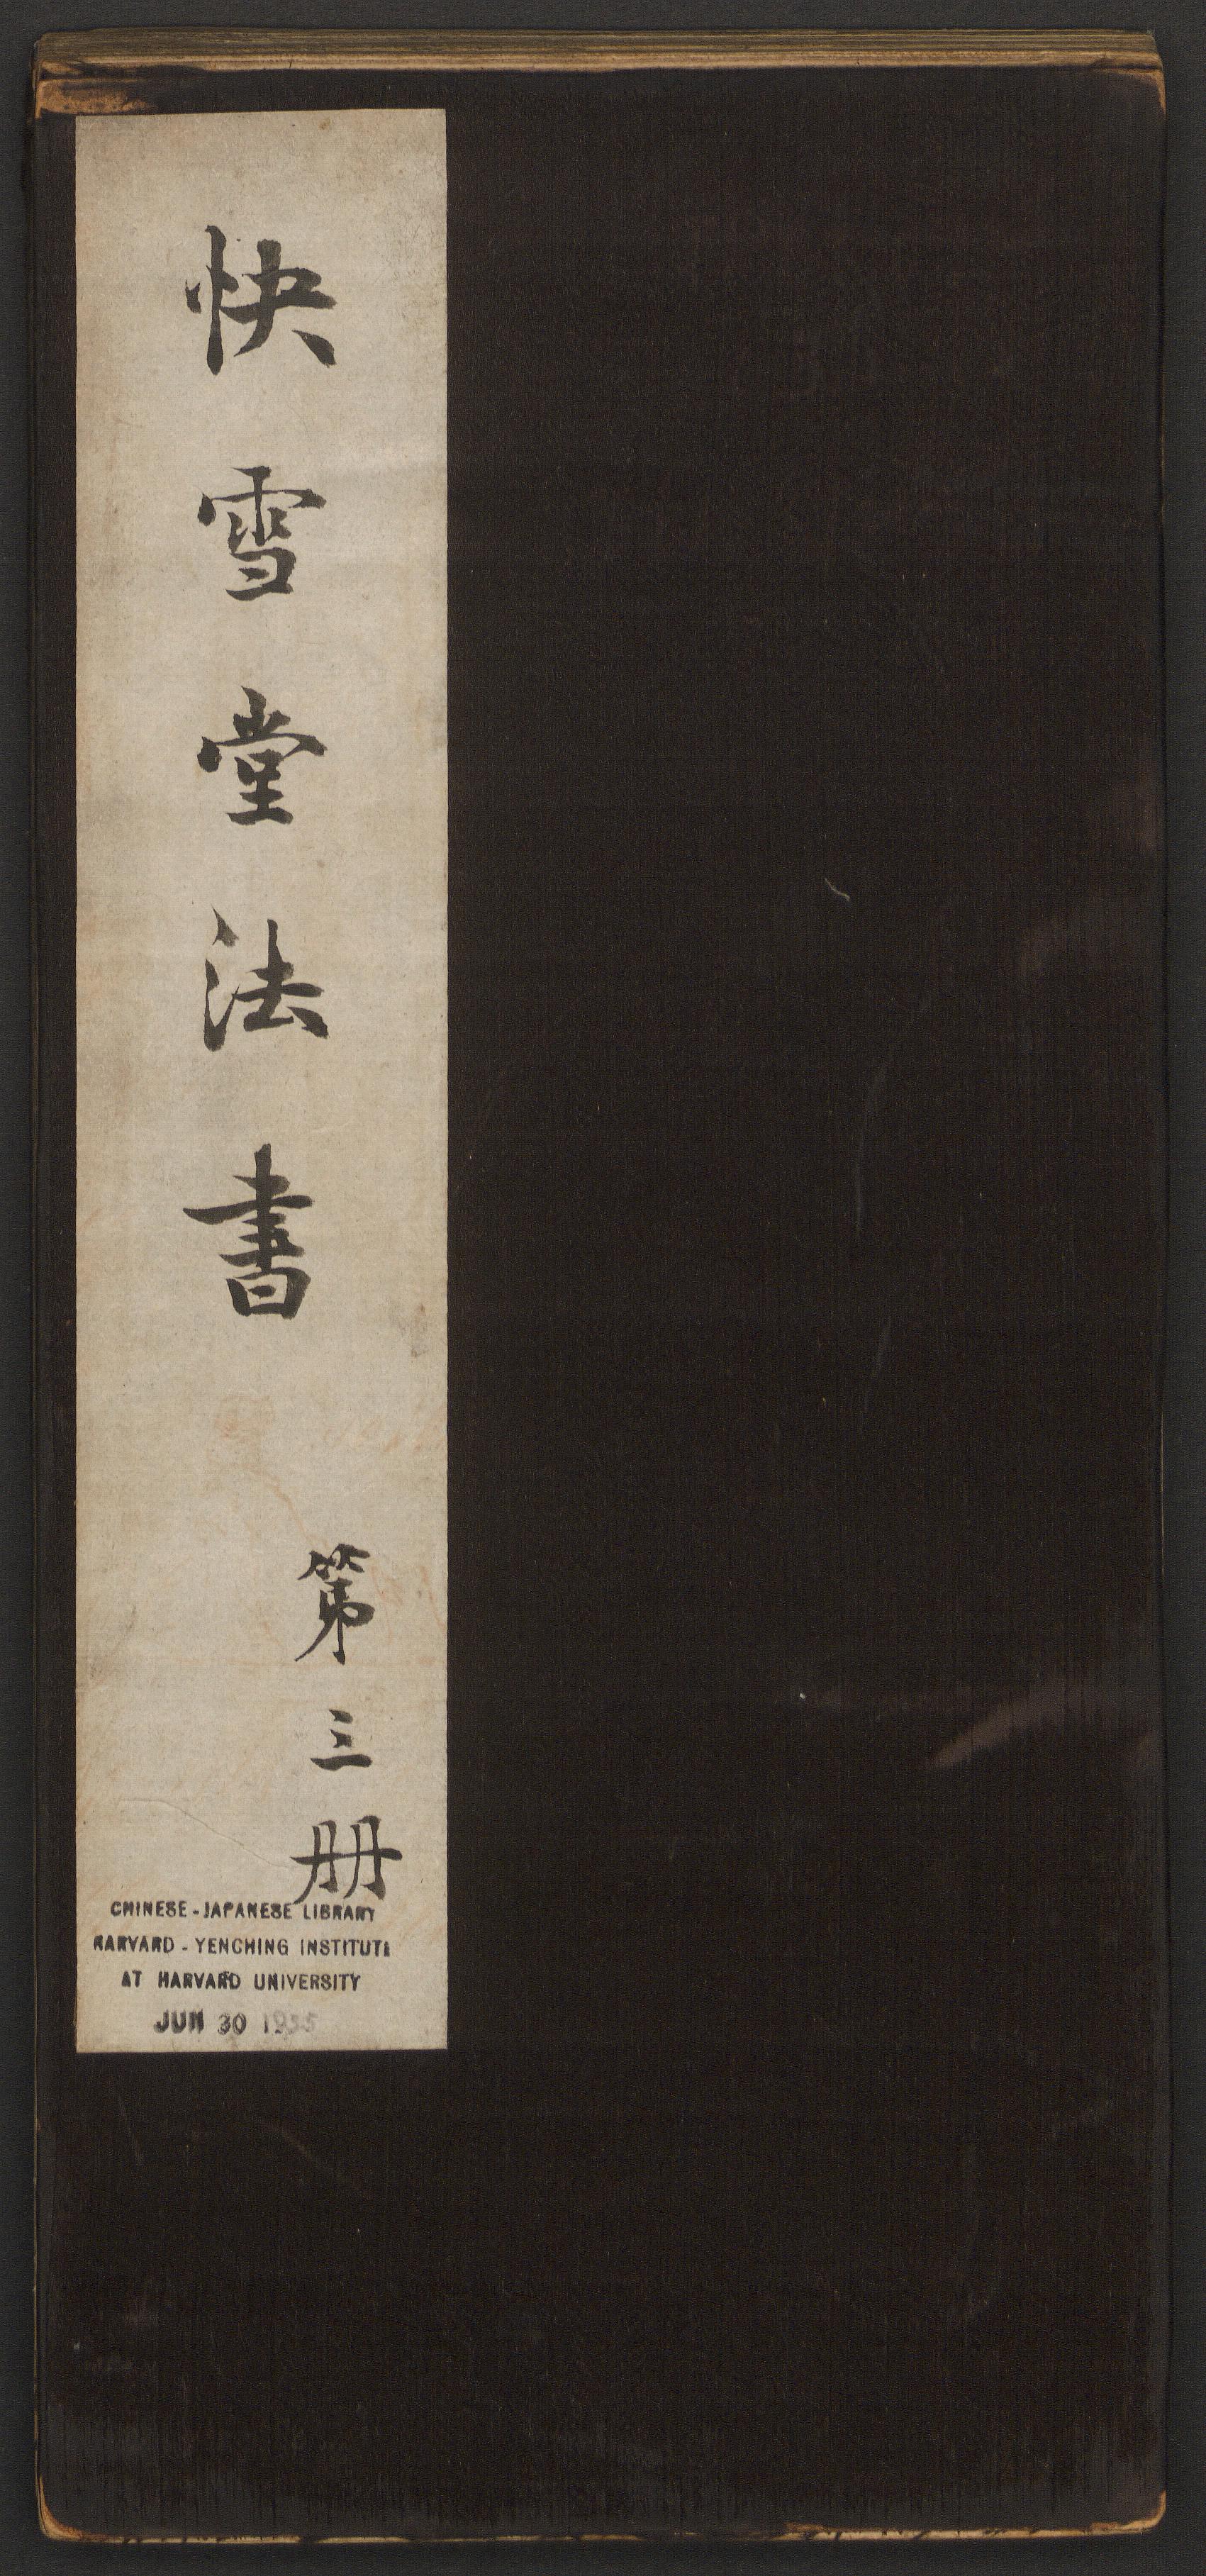 快雪堂法書
第三册
CHINESE-JAPANESE LIBRARY
HARVARD-YENCHING INSTITUTE
AT HARVARD UNIVERSITY
JUN 30 1935